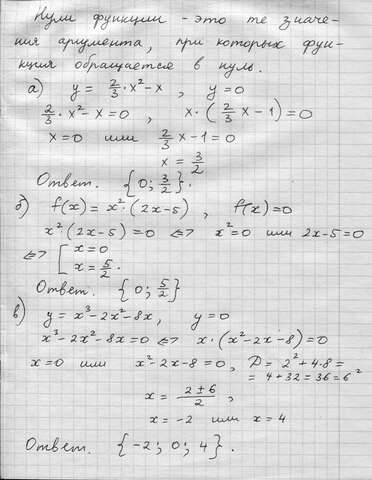 Нули функции - это те значе-
ния аргумента, при которых фун-
кция обращается в нуль.
а) y = 2/3 · x² - x , y = 0
2/3 · x² - x = 0 , x · (2/3 x - 1) = 0
x = 0 или 2/3 x - 1 = 0
x = 3/2
Ответ. {0; 3/2}.
б) f(x) = x² · (2x - 5) , f(x) = 0
x² · (2x - 5) = 0 <=> x² = 0 или 2x - 5 = 0
<=> [ x = 0
x = 5/2 .
Ответ. {0; 5/2}
в) y = x³ - 2x² - 8x , y = 0
x³ - 2x² - 8x = 0 <=> x · (x² - 2x - 8) = 0
x = 0 или x² - 2x - 8 = 0 , D = 2² + 4·8 =
= 4 + 32 = 36 = 6²
x = (2 ± 6)/2 ,
x = -2 или x = 4
Ответ. {-2; 0; 4}.